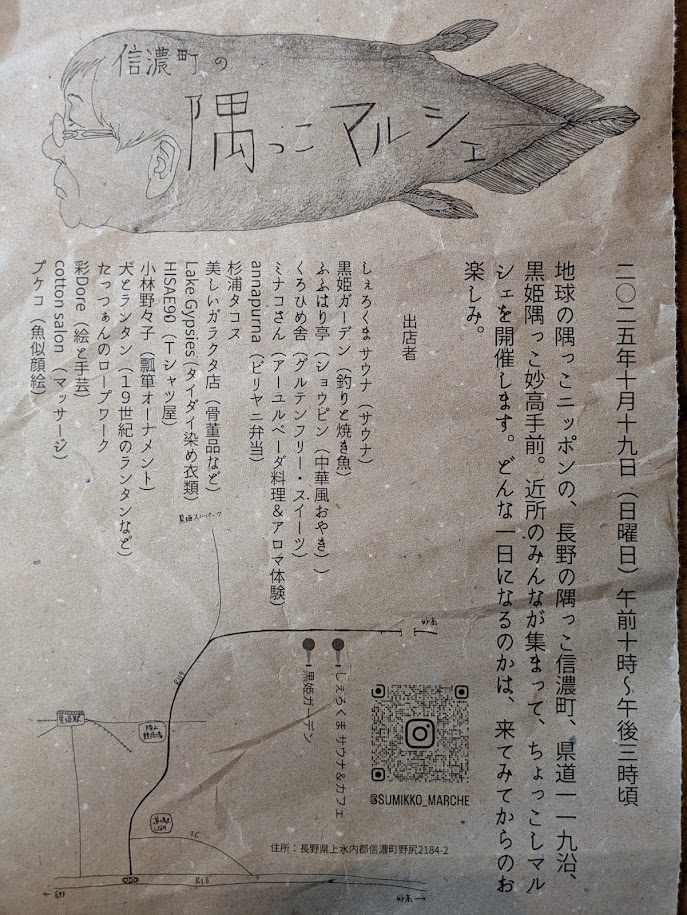 信濃町の
隅っこマルシェ
二〇二五年十月十九日（日曜日）午前十時〜午後三時頃
地球の隅っこニッポンの、長野の隅っこ信濃町、県道一一九沿、
黒姫隅っこ妙高手前。近所のみんなが集まって、ちょっこしマル
シェを開催します。どんな一日になるのかは、来てみてからのお
楽しみ。
出店者
しぇろくま サウナ（サウナ）
黒姫ガーデン（釣りと焼き魚）
ふふはり亭（ショウピン（中華風おやき））
くろひめ舎（グルテンフリー・スイーツ）
ミナコさん（アーユルベーダ料理＆アロマ体験）
annapurna（ビリヤニ弁当）
杉浦タコス
美しいガラクタ店（骨董品など）
Lake Gypsies（タイダイ染め衣類）
HISAE90（Tシャツ屋）
小林野々子（瓢箪オーナメント）
犬とランタン（19世紀のランタンなど）
たっつぁんのロープワーク
彩Dore（絵と手芸）
cotton salon（マッサージ）
プケコ（魚似顔絵）
@SUMIKKO_MARCHE
住所：長野県上水内郡信濃町野尻2184-2
しぇろくま サウナ＆カフェ
黒姫ガーデン
黒姫スノーパーク
妙高
R119
黒姫駅
IC
R18
←長野
妙高→